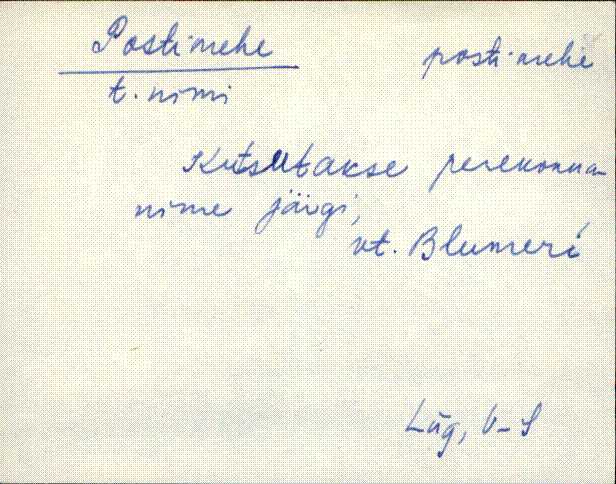 Postimehe postimehe
t. nimi
Kutsutakse perekonna-
nime järgi,
vt. Blumeri
Lüg, V-S